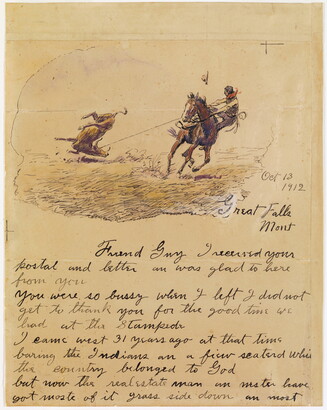 Oct 13
1912
Great Falls
Mont
Friend Guy I received your
postal and letter an was glad to here
from you
You were so bussy when I left I did not
get to thank you for the good time we
had at the Stampede
I came west 31 years ago at that time
baring the Indians an a fiew scaterd whites
the country belonged to God
but now the real estate man an nester have
got moste of it grass side down an most